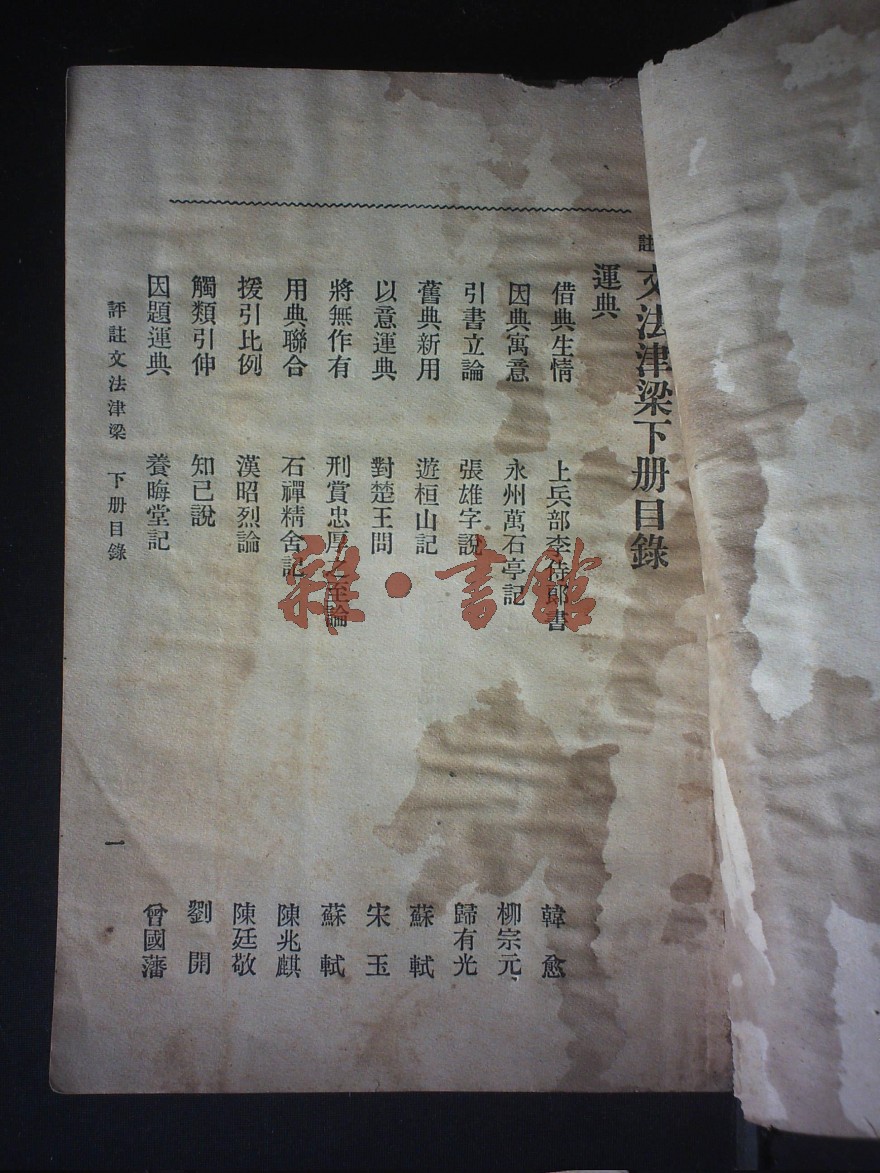 註文法津梁下册目錄
運典
借典生情 上兵部李侍郎書 韓愈
因典寓意 永州萬石亭記 柳宗元
引書立論 張雄字說 歸有光
舊典新用 遊桓山記 蘇軾
以意運典 對楚王問 宋玉
將無作有 刑賞忠厚之至論 蘇軾
用典聯合 石禪精舍記 陳兆麒
援引比例 漢昭烈論 陳廷敬
觸類引伸 知己說 劉開
因題運典 養晦堂記 曾國藩
評註文法津梁 下册目錄
一
雜·書館